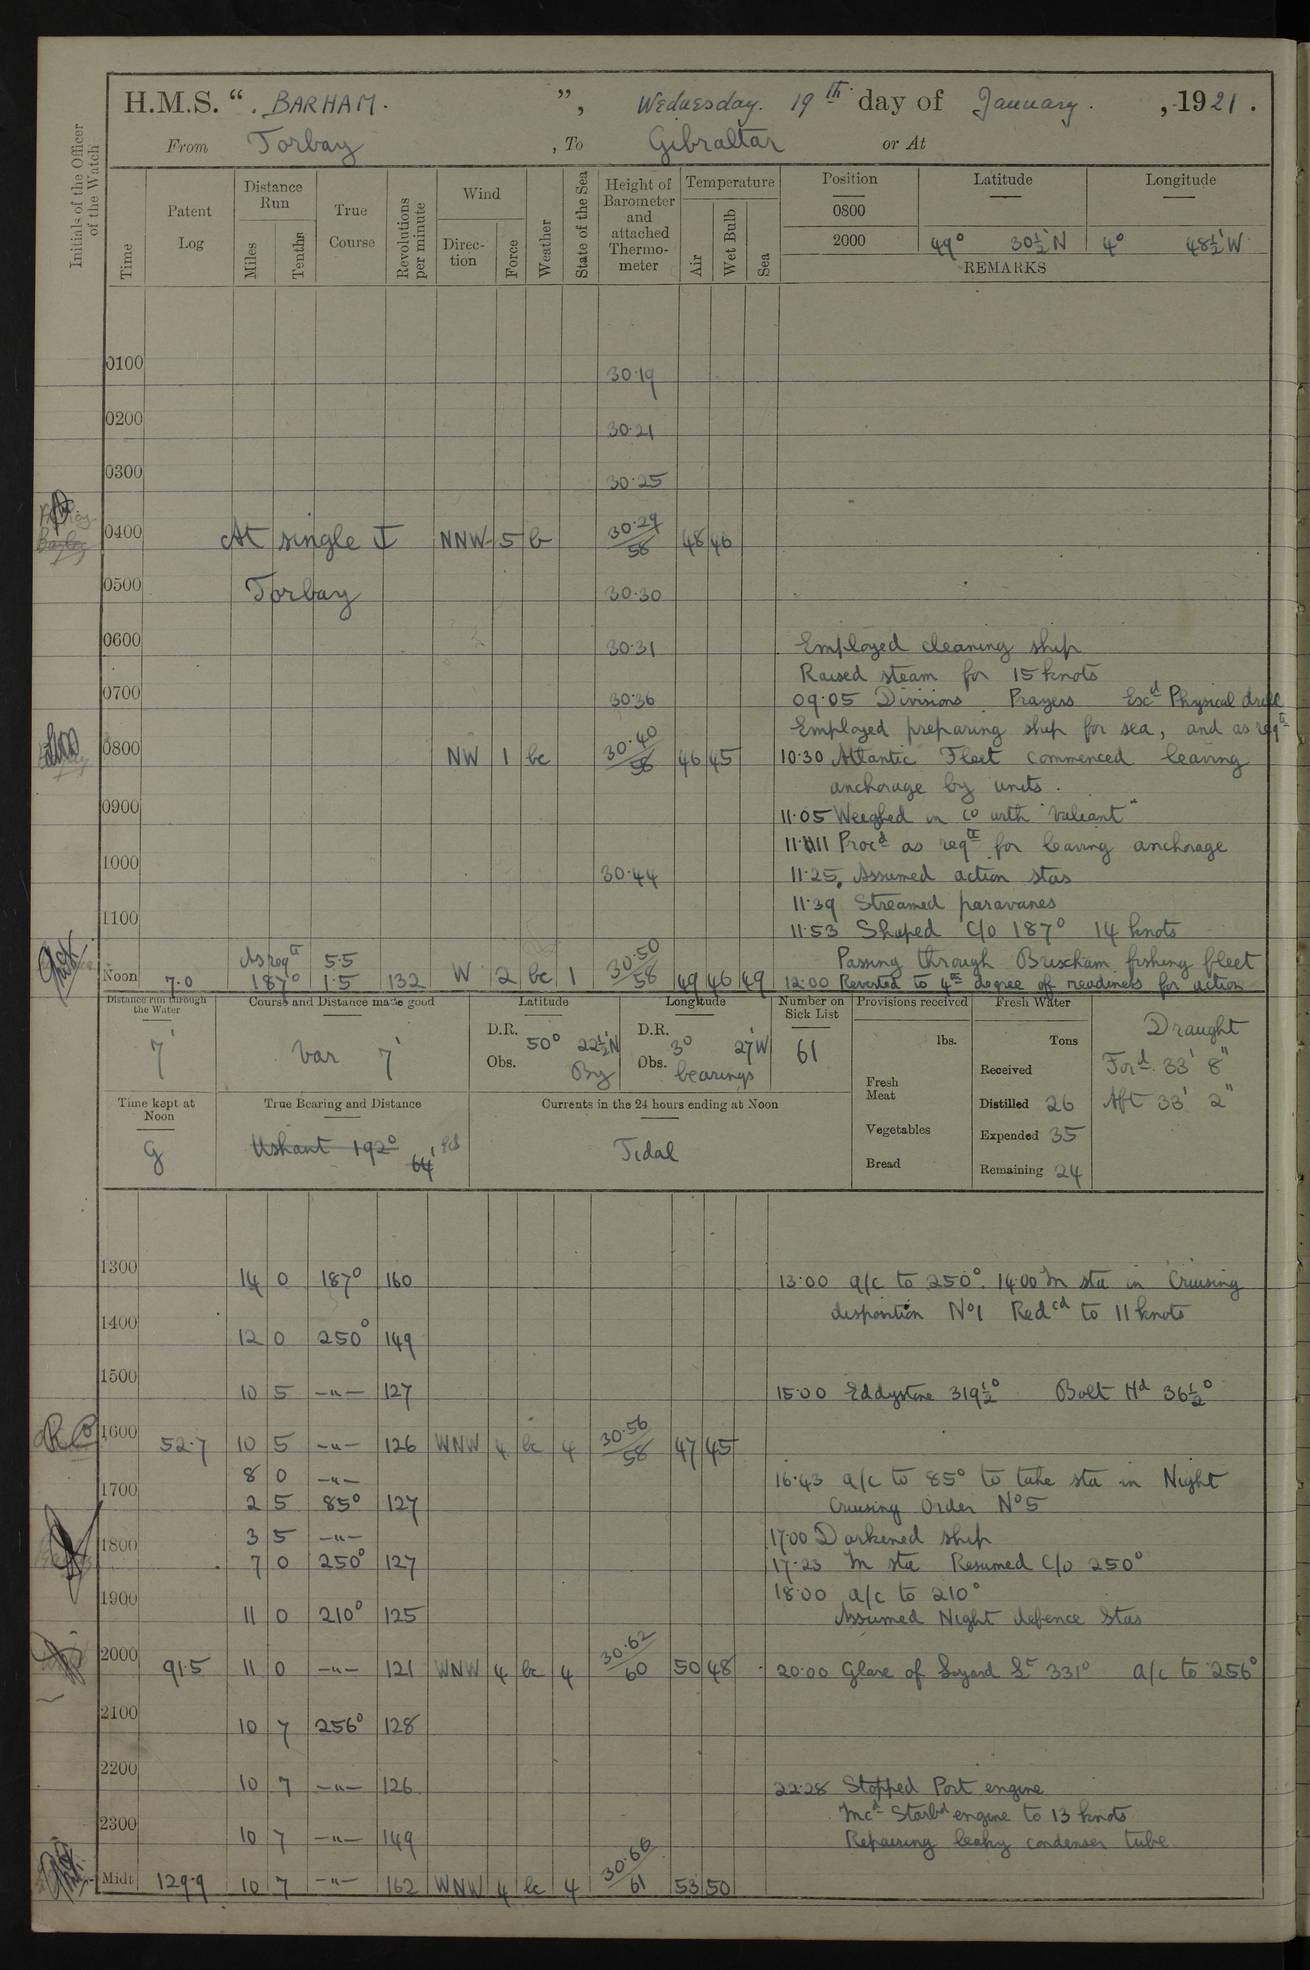 H.M.S. “. BARHAM. ”, Wednesday. 19th day of January. , 1921.
From Torbay , To Gibraltar or At
Initials of the Officer of the Watch
Time
Patent Log
Distance Run
Miles
Tenths
True Course
Revolutions per minute
Wind
Direc-tion
Force
Weather
State of the Sea
Height of Barometer and attached Thermo-meter
Temperature
Air
Wet Bulb
Sea
Position Latitude Longitude
0800
2000 49° 30½'N 4° 48½'W
REMARKS
0100 30·19
0200 30·21
0300 30·25
0400 At single NNW 5 b 30·29/58 48 46
0500 Torbay 30·30
0600 30·31 Employed cleaning ship
Raised steam for 15 knots
0700 30·36 09·05 Divisions Prayers Excd Physical drill
Employed preparing ship for sea, and as reqte
0800 NW 1 bc 30·40/58 46 45 10·30 Atlantic Fleet commenced leaving
anchorage by units.
0900 11·05 Weighed in co with "Valiant"
11·11 Procd as reqte for leaving anchorage
1000 30·44 11·25 Assumed action stas
11·39 Streamed paravanes
1100 11·53 Shaped C/o 187° 14 knots
As reqte 5·5 Passing through Brixham fishing fleet
Noon 7·0 187° 1·5 132 W 2 bc 1 30·50/58 49 46 49 12·00 Reverted to 4th degree of readiness for action
Distance run through the Water
7'
Course and Distance made good
Var 7'
Latitude
D.R. 50° 22½'N
Obs. By
Longitude
D.R. 3° 27'W
Obs. bearings
Number on Sick List
61
Provisions received
lbs.
Fresh Meat
Vegetables
Bread
Fresh Water
Tons
Received
Distilled 26
Expended 35
Remaining 24
Draught
Ford 33' 8"
Aft 33' 2"
Time kept at Noon
G
True Bearing and Distance
Ushant 192° 64'
Currents in the 24 hours ending at Noon
Tidal
1300 14 0 187° 160 13·00 a/c to 250°. 14·00 In sta in Cruising
disposition No1 Redcd to 11 knots
1400 12 0 250° 149
1500 10 5 -"- 127 15·00 Eddystone 319½° Bolt Hd 36½°
1600 52·7 10 5 -"- 126 WNW 4 bc 4 30·56/58 47 45
8 0 -"- 16·43 a/c to 85° to take sta in Night
1700 2 5 85° 127 Cruising Order No5
3 5 -"- 17·00 Darkened ship
1800 7 0 250° 127 17·23 In sta Resumed C/o 250°
18·00 a/c to 210°
1900 11 0 210° 125 Assumed Night defence Stas
2000 91·5 11 0 -"- 121 WNW 4 bc 4 30·62/60 50 48 20·00 Glare of Lizard Lt 331° a/c to 256°
2100 10 7 256° 128
2200 10 7 -"- 126 22·28 Stopped Port engine
Incd Starbd engine to 13 knots
2300 10 7 -"- 149 Repairing leaky condenser tube
Midt 129·9 10 7 -"- 162 WNW 4 bc 4 30·66/61 53 50